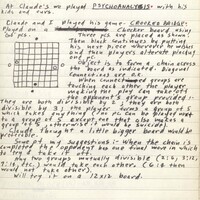 At Claude's we played PSYCHOANALYSIS with his
kids and Tura.
Claude and I played his game: CHECKER BRIDGE.
Played on a Checker board using
Go pcs. Three pcs are placed as shown:
Then black continues by placing
his next piece wherever he wishes
and then players alternate placing
one pc.
Object is to form a chain across
the board as indicated. Diagonal
connections are o.k.
When connected groups are
touching each other the player
making the play can take off
the opponent's group provided:
They are both divisible by 2; they are both
divisible by 3; the player forms a group of 5
which takes anything (The pc can be played next
to a group of 5 except one that also makes a
group of 5, otherwise it would be suicide).
Claude thought a little bigger board would be
preferable.
Some of my suggestions: When the chain is
completed the opponent has one final move in which
to try to break it.
Any two groups mutually divisible (2:4, 3:15,
7:14, etc.) would take each other. (6:14 then
would not take other).
I'll try it on a 12x12 bd.